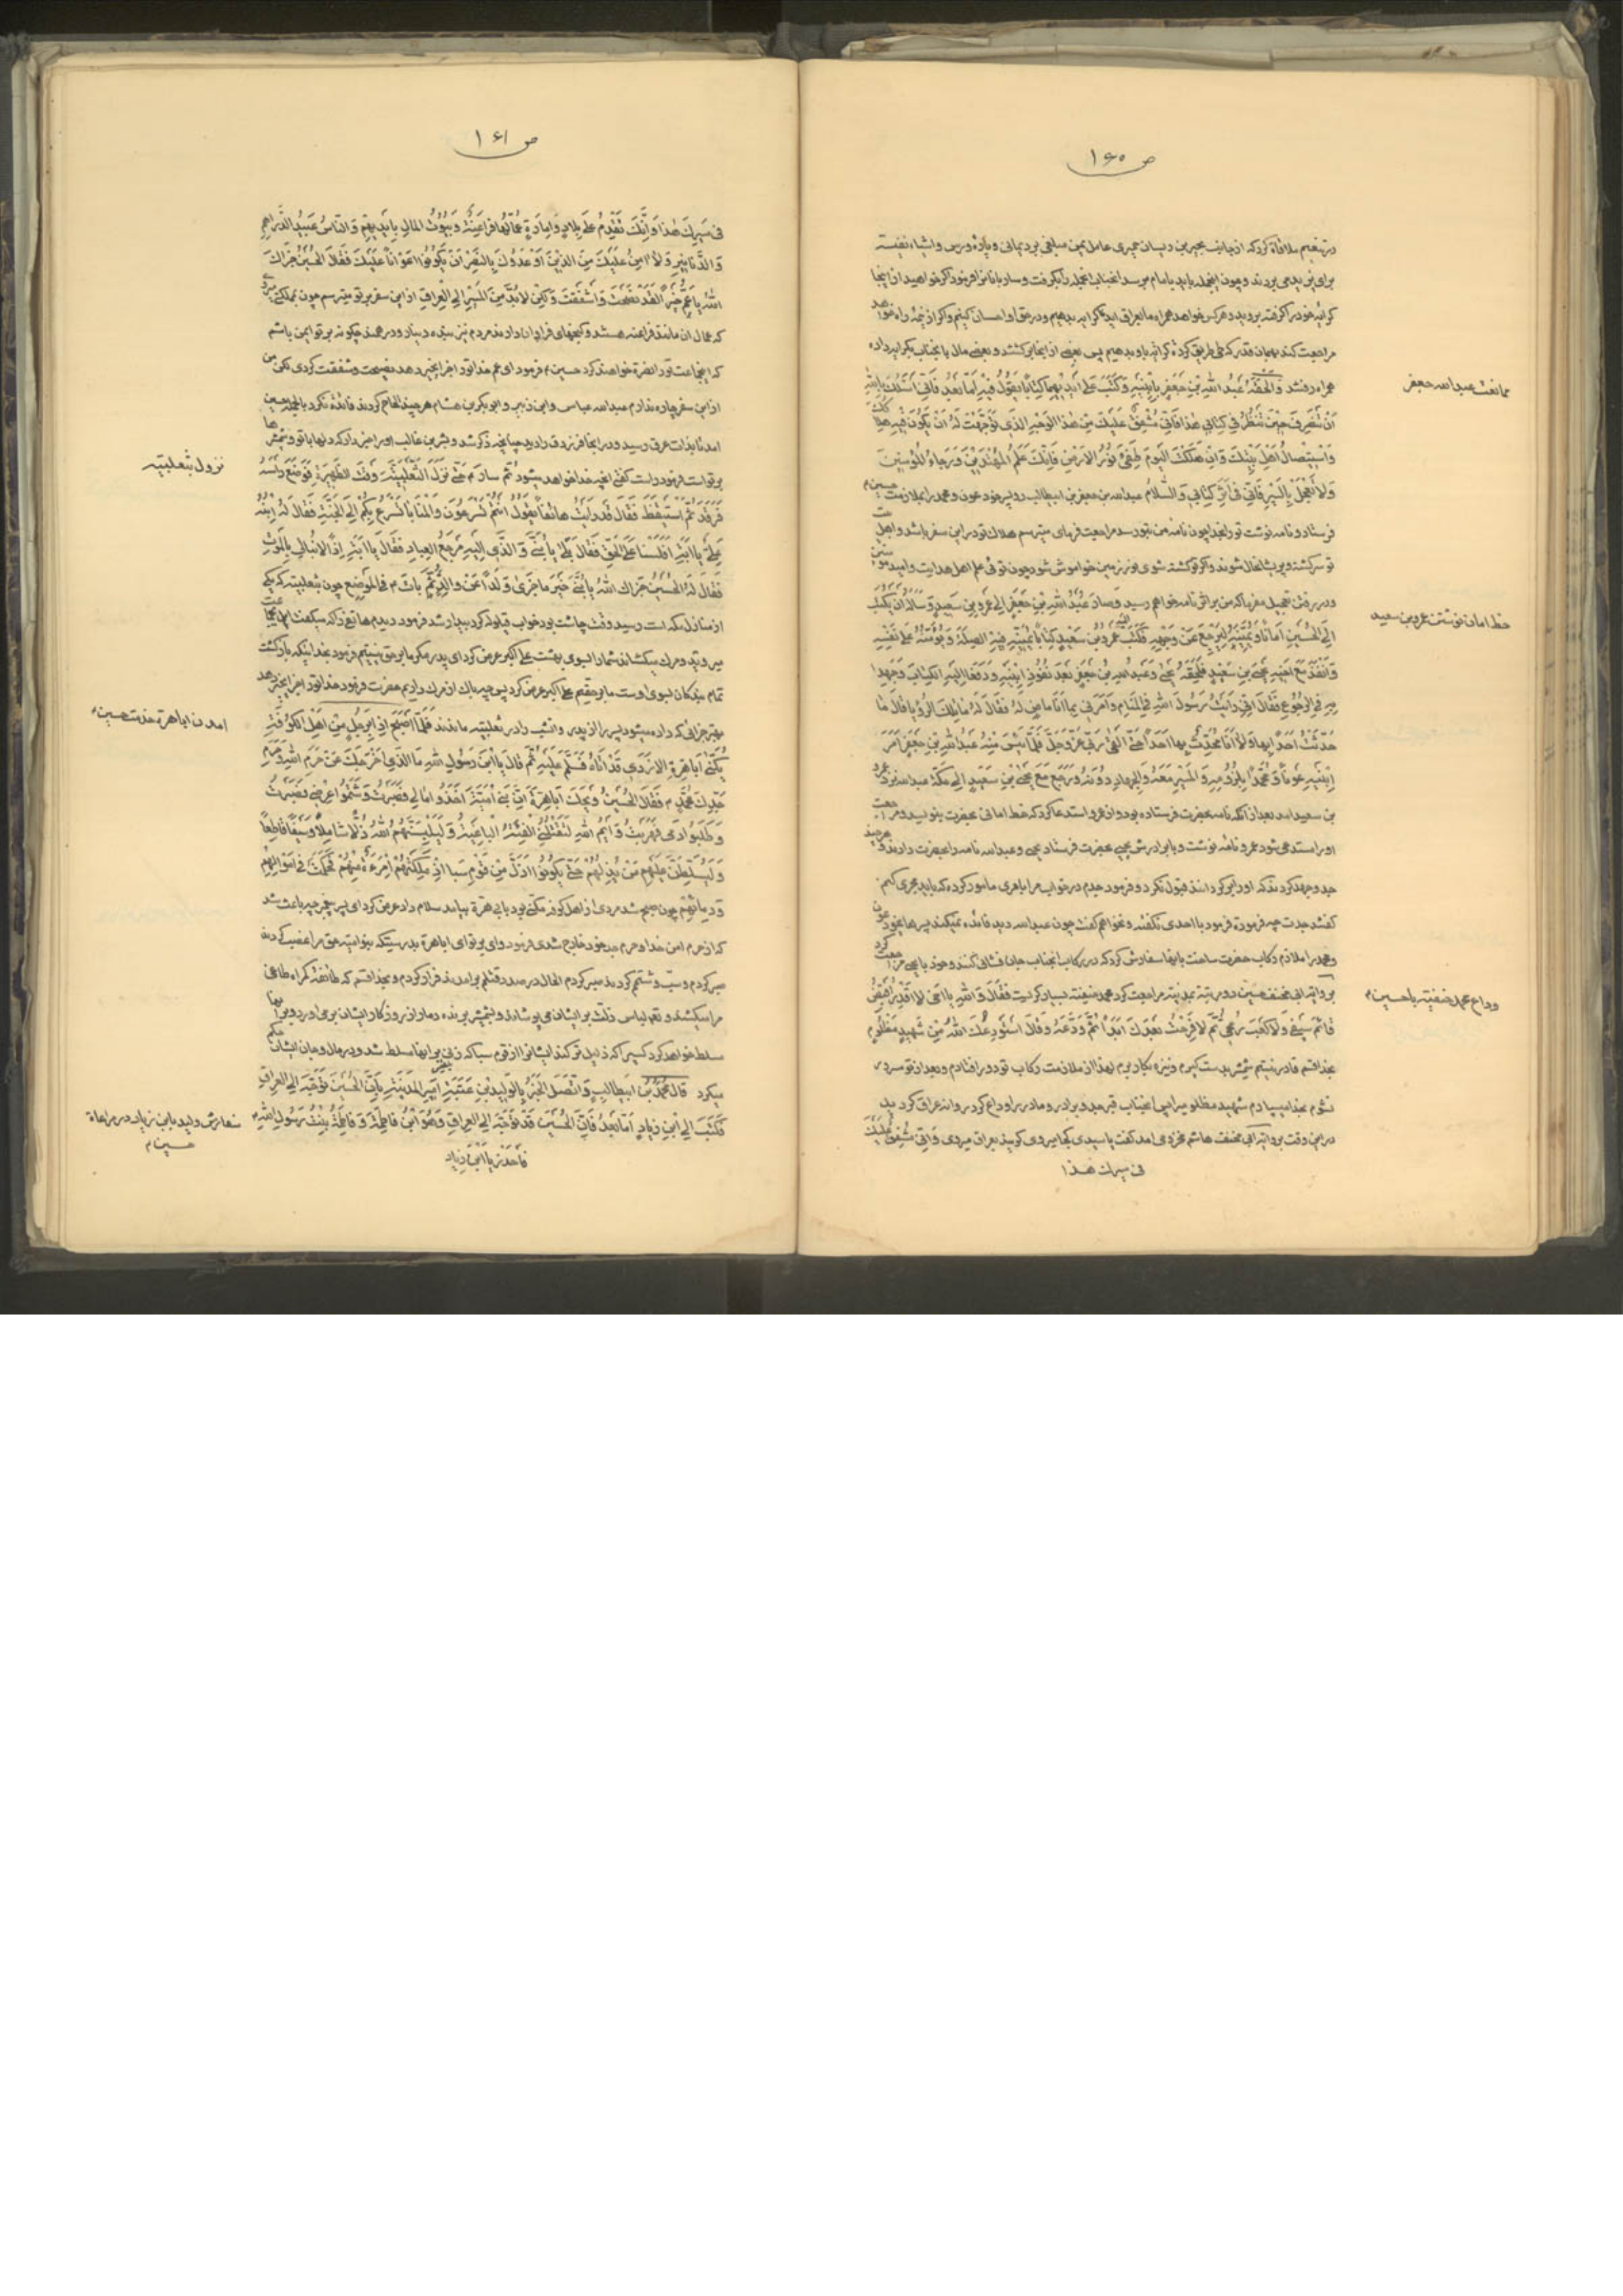 ص ١٦٠
در تنعیم ملاقاة کرد که از جانب بحیر بن ریسان حمیری عامل یمن مبلغی برد یمانی و پاره ورس و اشیاء نفیسه
برای یزید می بردند و چون انجمله باید با امام برسد انجناب انجمله را بگرفت و ساربانانرا فرمود اگر خواهید از اینجا
کرایه خود را گرفته بروید و هرکس خواهد همراه ما بعراق اید کرایه بدهیم و در حق او احسان کنیم و اگر از نیمه راه خواهد
مراجعت کند بهمان قدر که طی طریق کرده کرایه باو بدهیم پس بعضی از انجا برگشتند و بعضی مال با نجناب بکرایه داده
همراه رفتند وَالحَقَهُ عَبدُ اللهِ بنِ جَعفَرٍ بِابنَیهِ وَکَتَبَ عَلی اَیدیهِما کِتاباً یَقولُ فیهِ اَمّا بَعدُ فَاِنّی اَسئَلُکَ بِاللهِ
ممانعت عبدالله جعفر
اَن تَنصَرِفَ حینَ تَنظُرُ فی کِتابی هذا فَاِنّی مُشفِقٌ عَلَیکَ مِن هذَا الوَجهِ الَّذی تَوَجَّهتَ لَهُ اَن یَکونَ فیهِ هلاکک
وَاستیصالُ اَهلِ بَیتِکَ وَاِن هَلَکتَ الیَومَ طُفِیَ نورُ الاَرضِ فَاِنَّکَ عَلَمُ المُهتَدینَ وَرَجاءُ المُؤمِنینَ
وَلا تَعجَل بِالسَّیرِ فَاِنّی فی اَثَرِ کِتابی وَالسَّلام عبدالله بن جعفر بن ابیطالب دو پسر خود عون و محمد را بملازمت حسین م
فرستاد و نامه نوشت تو را بخدا چون نامه من بتو رسد مراجعت فرمای میترسم هلاک تو در این سفر باشد و اهل بیت
تو سرکشته و پریشانحال شوند و اگر تو کشته شوی نور زمین خواموش شود چون توئی علم اهل هدایت و امید مؤمنین
و در رفتن تعجیل مفرما که من براثر نامه خواهم رسید وَصارَ عَبدُ اللهِ بنِ جَعفَرٍ اِلی عَمروِ بنِ سَعیدٍ وَسَاَلَهُ اَن یَکتُبَ
خط امان نوشتن عمرو بن سعید
اِلَی الحُسَینِ اَماناً وَیُمَنّیهِ لِیَرجِعَ عَن وَجهِهِ فَکَتَبَ اِلَیهِ عَمرو بنُ سَعیدٍ کِتاباً یُمَنّیهِ فیهِ الصِّلَةَ وَیُؤمِنُهُ عَلی نَفسِهِ
وَاَنفَذَهُ مَعَ اَخیهِ یَحیَی بنِ سَعیدٍ فَلَحِقَهُ یَحیی وَعَبدُ اللهِ بنُ جَعفَرٍ بَعدَ نُفوذِ اِبنَیهِ وَدَفَعا اِلَیهِ الکِتابَ وَجَهِدا
بِهِ فِی الرُّجوعِ فَقالَ اِنّی رَاَیتُ رَسولَ اللهِ فِی المَنامِ وَاَمَرَنی بِما اَنَا ماضٍ لَهُ فَقالَ لَهُ ما تِلکَ الرُّؤیا قالَ ما
حَدَّثتُ اَحَداً بِها وَلا اَنَا مُحَدِّثٌ بِها اَحَداً حَتّی اَلقی رَبّی عَزَّ وَجَلَّ فَلَمّا یَئِسَ مِنهُ عَبدُ اللهِ بنِ جَعفَرٍ اَمَرَ
اِبنَیهِ عَوناً وَ مُحَمَّداً بِلُزومِهِ وَالمَسیرِ مَعَهُ وَالجِهادِ دونَهُ وَرَجَعَ مَعَ یَحیَی بنِ سَعیدٍ اِلی مَکَّةَ عبدالله نزد عمرو
بن سعید امد بعد از انکه نامه بحضرت فرستاده بود و از عمرو استدعا کرد که خط امانی بحضرت بنویسد و مراجعت
او را استدعی شود عمرو نامه نوشت و با برادرش یحیی بحضرت فرستاد یحیی و عبدالله نامه را بحضرت دادند و هرچند
جد و جهد کردند که او را برگردانند قبول نکرد و فرمود جدم در خواب مرا بامری مامور کرده که باید مجری کنم
گفتند جدت چه فرموده فرمود با احدی نگفته و نخواهم گفت چون عبدالله دید فائده نمیکند پسرها خود عون
و محمد را ملازم رکاب حضرت ساخت با انها سفارش کرد که در رکاب انجناب جان فشانی کنند و خود با یحیی مراجعت کرد
بروایة ابی مخنف حسین دو مرتبه بمدینه مراجعت کرد محمد حنفیه بسیار گریست فَقالَ وَاللهِ یا اَخی لا اَقدِرُ اَقبِضُ
وداع محمد حنفیة با حسین م
قائِمَ سَیفی وَلا کَعبَ رُمحی ثُمَّ لا فَرِحتُ بَعدَکَ اَبَداً ثُمَّ وَدَّعَهُ وَقالَ اَستَودِعُکَ اللهَ مِن شَهیدٍ مَظلومٍ
بخدا قسم قادر نیستم شمشیر بدست گیرم و نیزه بکار برم لهذا از ملازمت رکاب تو دور افتادم و بعد از تو مسرور
نشوم بخدا میسپارم شهید مظلوم پس انجناب قبر جد و برادر و مادر را وداع کرد روانه عراق کردید
در این وقت بروایة ابی مخنف هاشم مخزومی امد گفت یا سیدی کجا میروی گویند بعراق میروی وَاِنّی مُشفِقٌ عَلَیکَ
فی سیرک هذا
ص ١٦١
فی سَیرِکَ هذا وَاِنَّکَ تَقدِمُ عَلی بِلادٍ وَاِمارَةٍ عُمّالُها فَراعِنَةٌ وَبُیوتُ المالِ بِاَیدیهِم وَالنّاسُ عَبیدُ الدَّراهِمِ
وَالدَّنانیرِ وَلا امِنُ عَلَیکَ مِنَ الَّذینَ اَوعَدوکَ بِالنَّصرِ اَن یَکونوا اَعواناً عَلَیکَ فَقالَ الحُسَینُ جَزاکَ
اللهُ یابنَ عَمِّ خَیراً لَقَد نَصَحتَ وَاَشفَقتَ وَلکِن لابُدَّ مِنَ المَسیرِ اِلَی العِراقِ از این سفر بر تو میترسم چون بمملکتی میروی
که عمال ان مانند فراعنه هستند و گنجهای فراوان دارند مردم نیز بنده دینار و درهمند چگونه بر تو ایمن باشم
که این جماعت تو را نصرة خواهند کرد حسین م فرمود ای عم خدا تو را جزا بخیر دهد نصیحت و شفقت کردی لکن من
از این سفر چاره ندارم عبدالله عباس و ابن زبیر و ابوبکر بن هشام هرچند الحاح کردند فائده نکرد بالجمله حسین
امد تا بذات عرق رسید و در انجا فرزدق را دید چنانچه ذکر شد و بشر بن غالب او را خبر داد که دلها با تو و شمشیرها
بر تو است فرمود راست گفتی انچه خدا خواهد میشود ثُمَّ سارَ م حَتّی نَزَلَ الثَّعلَبِیَّةَ وَقتَ الظَّهیرَةِ فَوَضَعَ رَاسَهُ
نزول بثعلبیه
فَرَقَدَ ثُمَّ استَیقَظَ فَقالَ قَد رَاَیتُ هاتِفاً یَقولُ اَنتُم تَسرَعونَ وَالمَنایا تَسرَعُ بِکُم اِلَی الجَنَّةِ فَقالَ لَهُ اِبنُهُ
عَلِیٌّ یا اَبَه اَفَلَسنا عَلَی الحَقِّ فَقالَ بَلی یا بُنَیَّ وَالَّذی اِلَیهِ مَرجَعُ العِبادِ فَقالَ یا اَبَه اِذاً لا نُبالی بِالمَوتِ
فَقالَ لَهُ الحُسَینُ جَزاکَ اللهُ یا بُنَیَّ خَیرَ ما جَزی وَلَداً عَن والِدٍ ثُمَّ باتَ م فِی المَوضِعِ چون بثعلبیه که یکی
از منازل مکه است رسید وقت چاشت بود خواب قیلوله کرد بیدار شد فرمود دیدم هاتفی را که میگفت شما بتعجیل
میروید و مرگ میکشاند شما را بسوی بهشت علی اکبر عرض کرد ای پدر مگر ما بر حق نیستیم فرمود بخدائیکه بازگشت
تمام بندگان بسوی اوست ما بر حقیم علی اکبر عرض کرد پس چه باک از مرگ داریم حضرت فرمود خدا تو را جزا بخیر دهد
بهتر جزائی که داده میشود پسر را از پدر و انشب را در ثعلبیه ماندند فَلَمّا اَصبَحَ اِذا بِرَجُلٍ مِن اَهلِ الکوفَةِ
امدن اباهرة خدمت حسین م
یُکَنّی اَباهِرَةِ الاَزدی قَد اَتاهُ فَسَلَّمَ عَلَیهِ ثُمَّ قالَ یا ابنَ رَسولِ اللهِ مَا الَّذی اَخرَجَکَ عَن حَرَمِ اللهِ وَحَرَمِ
جَدِّکَ مُحَمَّدٍ م فَقالَ الحُسَینُ وَیحَکَ اَباهِرَةَ اِنَّ بَنی اُمَیَّةَ اَخَذوا مالی فَصَبَرتُ وَشَتَموا عِرضی فَصَبَرتُ
وَطَلَبوا دَمی فَهَرَبتُ وَ اَیمُ اللهِ لَتَقتُلُنی الفِئَةُ الباغِیَةُ وَلَیُلبِسَنَّهُمُ اللهُ ذُلّاً شامِلاً وَسَیفاً قاطِعاً
وَلَیُسَلِّطَنَّ عَلَیهِم مَن یُذِلُّهُم حَتّی یَکونوا اَذَلَّ مِن قَومِ سَبا اِذ مَلَکَتهُم اِمرَءَةٌ مِنهُم فَحَکَمَت فی اَموالِهِم
وَدِمائِهِم چون صبح شد مردی از اهل کوفه مکنی بود بابی هرة بیامد سلام داد عرض کرد ای پسر پیغمبر چه باعث شد
که از حرم امن خدا و حرم جد خود خارج شدی فرمود وای بر تو ای اباهرة بدرستیکه بنوامیه حق مرا غصب کردند
صبر کردم و سب و شتمم کردند صبر کردم الحال در صدد قتلم برامدند فرار کردم و بخدا قسم که طائفه گمراه طاغی
مرا میکشند و خدا لباس ذلت بر ایشان می پوشاند و شمشیر برنده دمار از روزگار ایشان برمی اورد و بر انها
مسلط خواهد کرد کسیرا که ذلیل تر کند ایشانرا از قوم سبا که زنی بر انها مسلط شد و در مال و جان ایشان حکم
میکرد قالَ مُحَمَّدُ بنُ ابیطالِبٍ وَاتَّصَلَ الخَبَرُ بِالوَلیدِ بنِ عُتبَةِ اَمیرِ المَدینَةِ بِاَنَّ الحُسَینَ تَوَجَّهَ اِلَی العِراقِ
فَکَتَبَ اِلَی ابنِ زِیادٍ اَمّا بَعدُ فَاِنَّ الحُسَینَ قَد تَوَجَّهَ اِلَی العِراقِ وَهُوَ ابنُ فاطِمَةَ وَفاطِمَةُ بِنتُ رَسولِ اللهِ م
سفارش ولید بابن زیاد در مراعاة
حسین م
فَاحذَر یَا ابنَ زِیاد